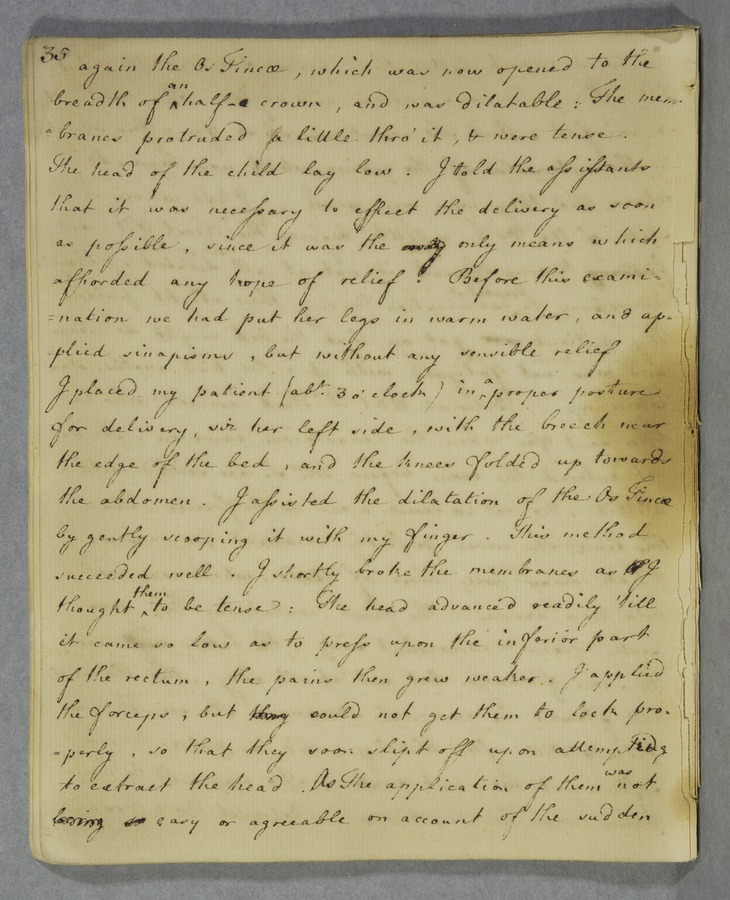 35
again the Os Tincæ, which was now opened to the
breadth of an half-a crown, and was dilatable: The mem-
=branes protruded a little thro' it, & were tense.
The head of the child lay low. I told the assistants
that it was necessary to effect the delivery as soon
as possible, since it was the only means which
afforded any hope of relief! Before this exami=
=nation we had put her legs in warm water, and ap-
plied sinapisms, but without any sensible relief
I placed my patient (abt. 3 o'clock) in a proper posture
for delivery, viz her left side, with the breech near
the edge of the bed, and the knees folded up towards
the abdomen. I assisted the dilatation of the Os Tincæ
by gently scooping it with my finger. This method
succeeded well. I shortly broke the membranes as I
thought them to be tense: The head advanced readily 'till
it came so low as to press upon the inferior part
of the rectum, the pains then grew weaker. I applied
the forceps, but could not get them to lock pro-
=perly, so that they soon slipt off upon attempting
to extract the head. As The application of them was not
being so easy or agreeable on account of the sudden